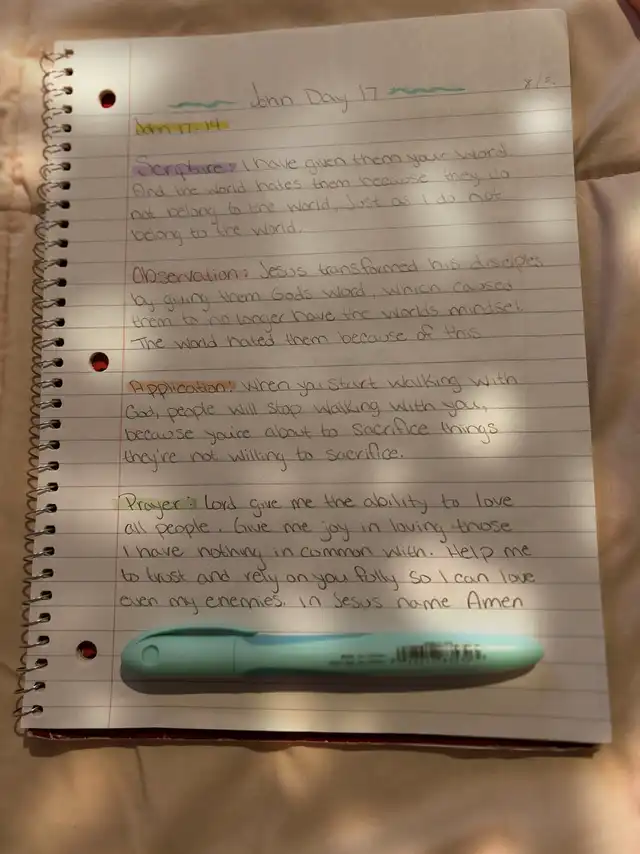 John Day 17
John 17:14
Scripture: I have given them your word.
And the world hates them because they do
not belong to the world, just as I do not
belong to the world.
Observation: Jesus transformed his disciples
by giving them Gods Word, which caused
them to no longer have the worlds mindset.
The world hated them because of this
Application: When you start walking with
God, people will stop walking with you,
because you're about to sacrifice things
they're not willing to sacrifice.
Prayer: Lord give me the ability to love
all people. Give me joy in loving those
I have nothing in common with. Help me
to trust and rely on you fully so I can love
even my enemies. In Jesus name Amen